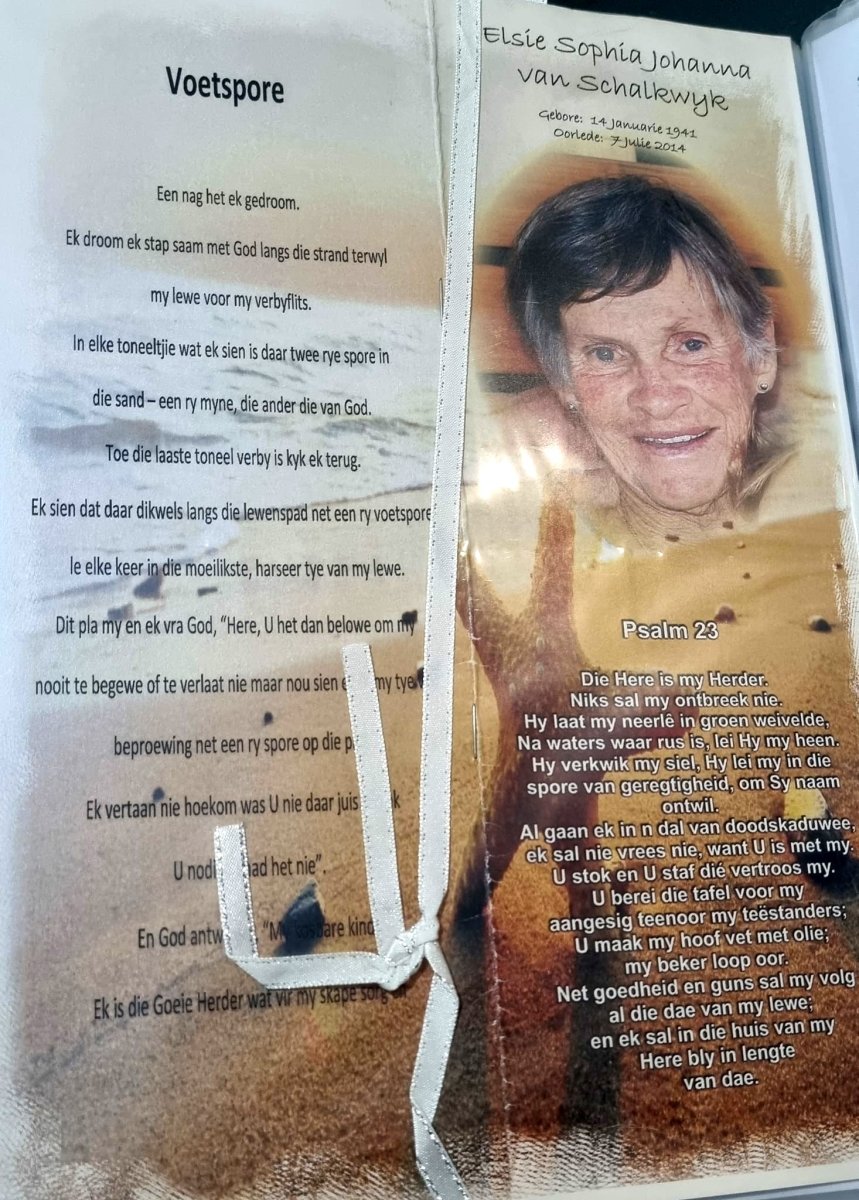 Voetspore
Een nag het ek gedroom.
Ek droom ek stap saam met God langs die strand terwyl
my lewe voor my verbyflits.
In elke toneeltjie wat ek sien is daar twee rye spore in
die sand – een ry myne, die ander die van God.
Toe die laaste toneel verby is kyk ek terug.
Ek sien dat daar dikwels langs die lewenspad net een ry voetspore
le elke keer in die moeilikste, harseer tye van my lewe.
Dit pla my en ek vra God, “Here, U het dan belowe om my
nooit te begewe of te verlaat nie maar nou sien my tye
beproewing net een ry spore op die
Ek vertaan nie hoekom was U nie daar juis
U het nie”.
En God kind
Ek is die Goeie Herder wat vir my skape sorg
Elsie Sophia Johanna
van Schalkwyk
Gebore: 14 Januarie 1941
Oorlede: 7 Julie 2014
Psalm 23
Die Here is my Herder.
Niks sal my ontbreek nie.
Hy laat my neerlê in groen weivelde,
Na waters waar rus is, lei Hy my heen.
Hy verkwik my siel, Hy lei my in die
spore van geregtigheid, om Sy naam
ontwil.
Al gaan ek in n dal van doodskaduwee,
ek sal nie vrees nie, want U is met my.
U stok en U staf dié vertroos my.
U berei die tafel voor my
aangesig teenoor my teëstanders;
U maak my hoof vet met olie;
my beker loop oor.
Net goedheid en guns sal my volg
al die dae van my lewe;
en ek sal in die huis van my
Here bly in lengte
van dae.